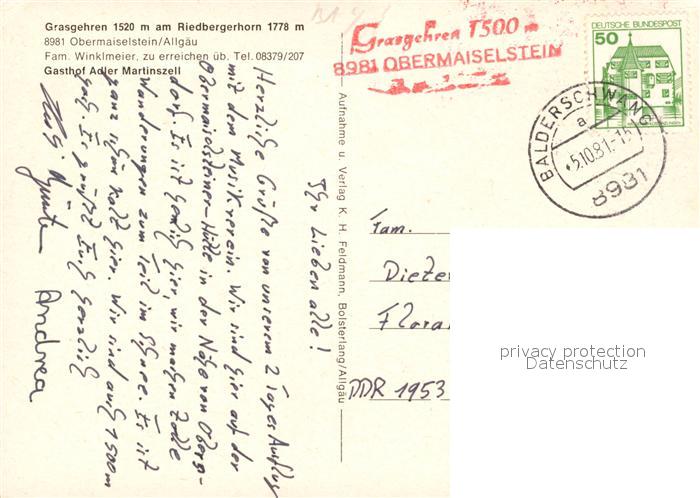 Grasgehren 1520 m am Riedbergerhorn 1778 m
8981 Obermaiselstein/Allgäu
Fam. Winklmeier, zu erreichen üb. Tel. 08379/207
Gasthof Adler Martinszell
Grasgehren 1500 m
8981 OBERMAISELSTEIN
DEUTSCHE BUNDESPOST
50
BALDERSCHWANG
a
-5.10.81.-15
8981
Ihr Lieben alle!
Herzliche Grüße von unserem 2 Tages Ausflug
mit dem Musikverein. Wir sind hier auf der
Obermaiselsteiner-Hütte in der Nähe von Oberst-
dorf. Es ist herrlich hier, wir machen tolle
Wanderungen zum Teil im Schnee. Es ist
ganz schön kalt hier. Wir sind auf 1500m
Es grüßt Euch herzlich
Günter Andrea
Aufnahme u. Verlag K. H. Feldmann, Bolsterlang/Allgäu
Fam.
Dieter
Flora
DDR 1953
privacy protection
Datenschutz